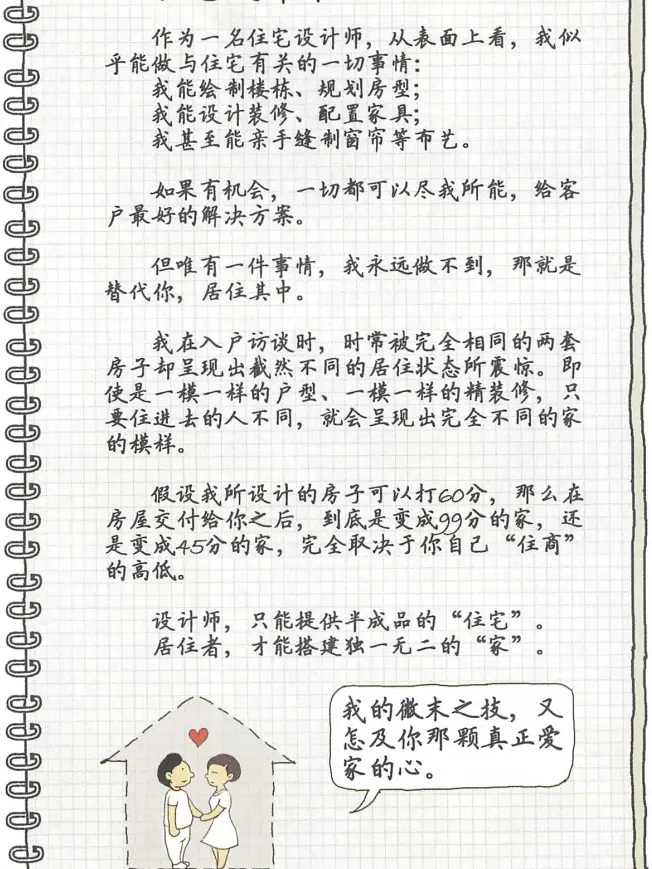 作为一名住宅设计师，从表面上看，我似
乎能做与住宅有关的一切事情：
我能绘制楼栋、规划房型；
我能设计装修、配置家具；
我甚至能亲手缝制窗帘等布艺。
如果有机会，一切都可以尽我所能，给客
户最好的解决方案。
但唯有一件事情，我永远做不到，那就是
替代你，居住其中。
我在入户访谈时，时常被完全相同的两套
房子却呈现出截然不同的居住状态所震惊。即
使是一模一样的户型、一模一样的精装修，只
要住进去的人不同，就会呈现出完全不同的家
的模样。
假设我所设计的房子可以打60分，那么在
房屋交付给你之后，到底是变成99分的家，还
是变成45分的家，完全取决于你自己“住商”
的高低。
设计师，只能提供半成品的“住宅”。
居住者，才能搭建独一无二的“家”。
我的微末之技，又
怎及你那颗真正爱
家的心。